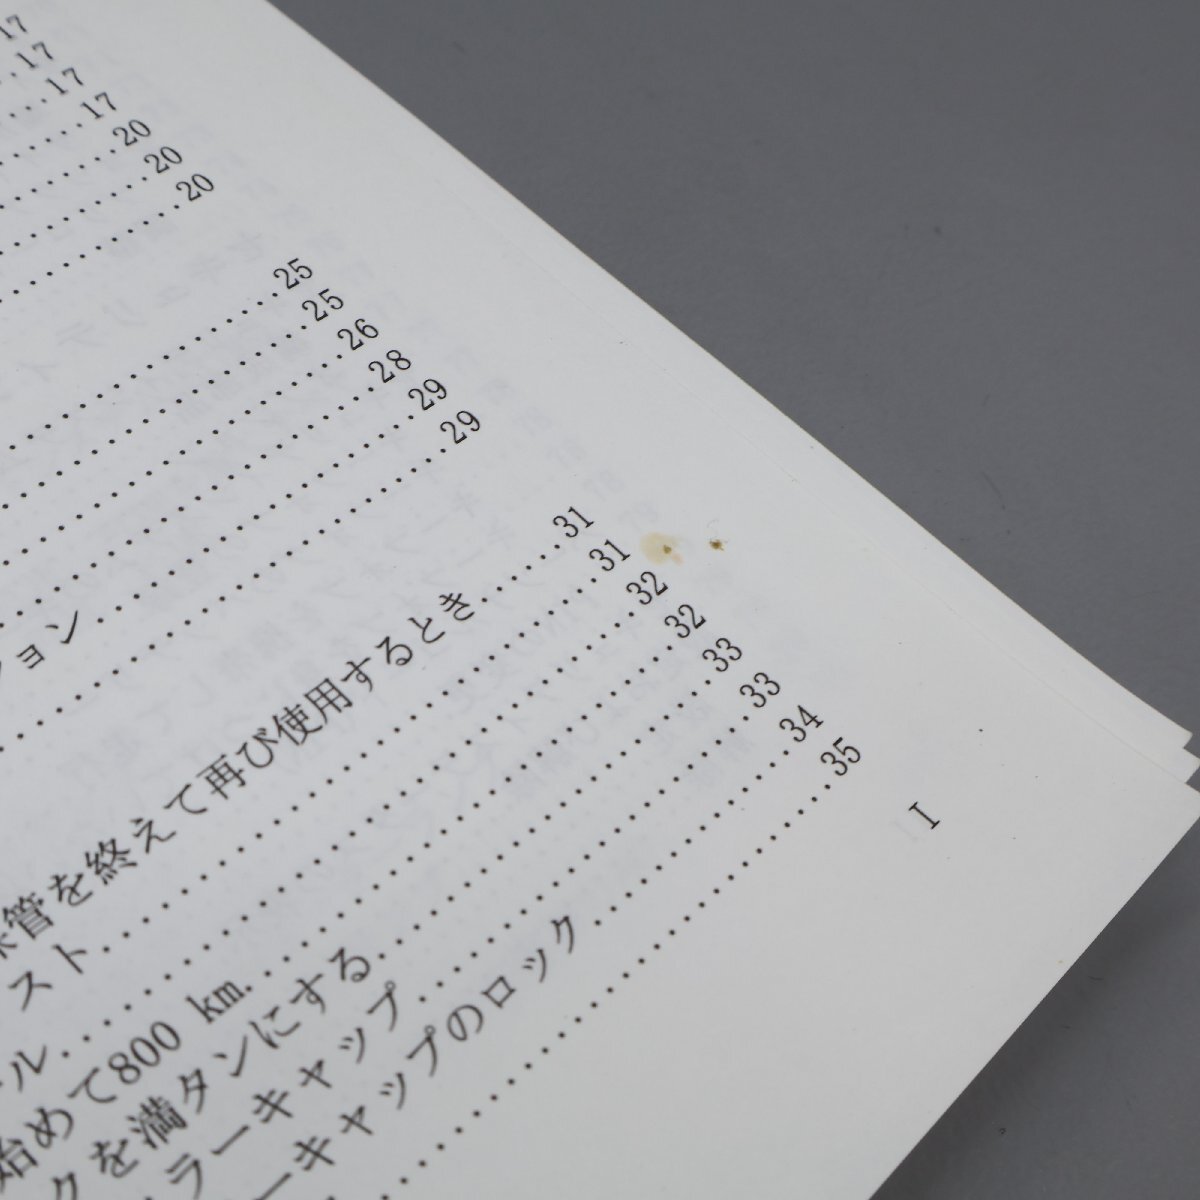 17
17
17
17
20
20
20
25
25
26
28
ション 29
29
管を終えて再び使用するとき 31
スト 31
ル 32
始めて800 km. 32
クを満タンにする 33
ラーキャップ 33
ーキャップのロック 34
35
I